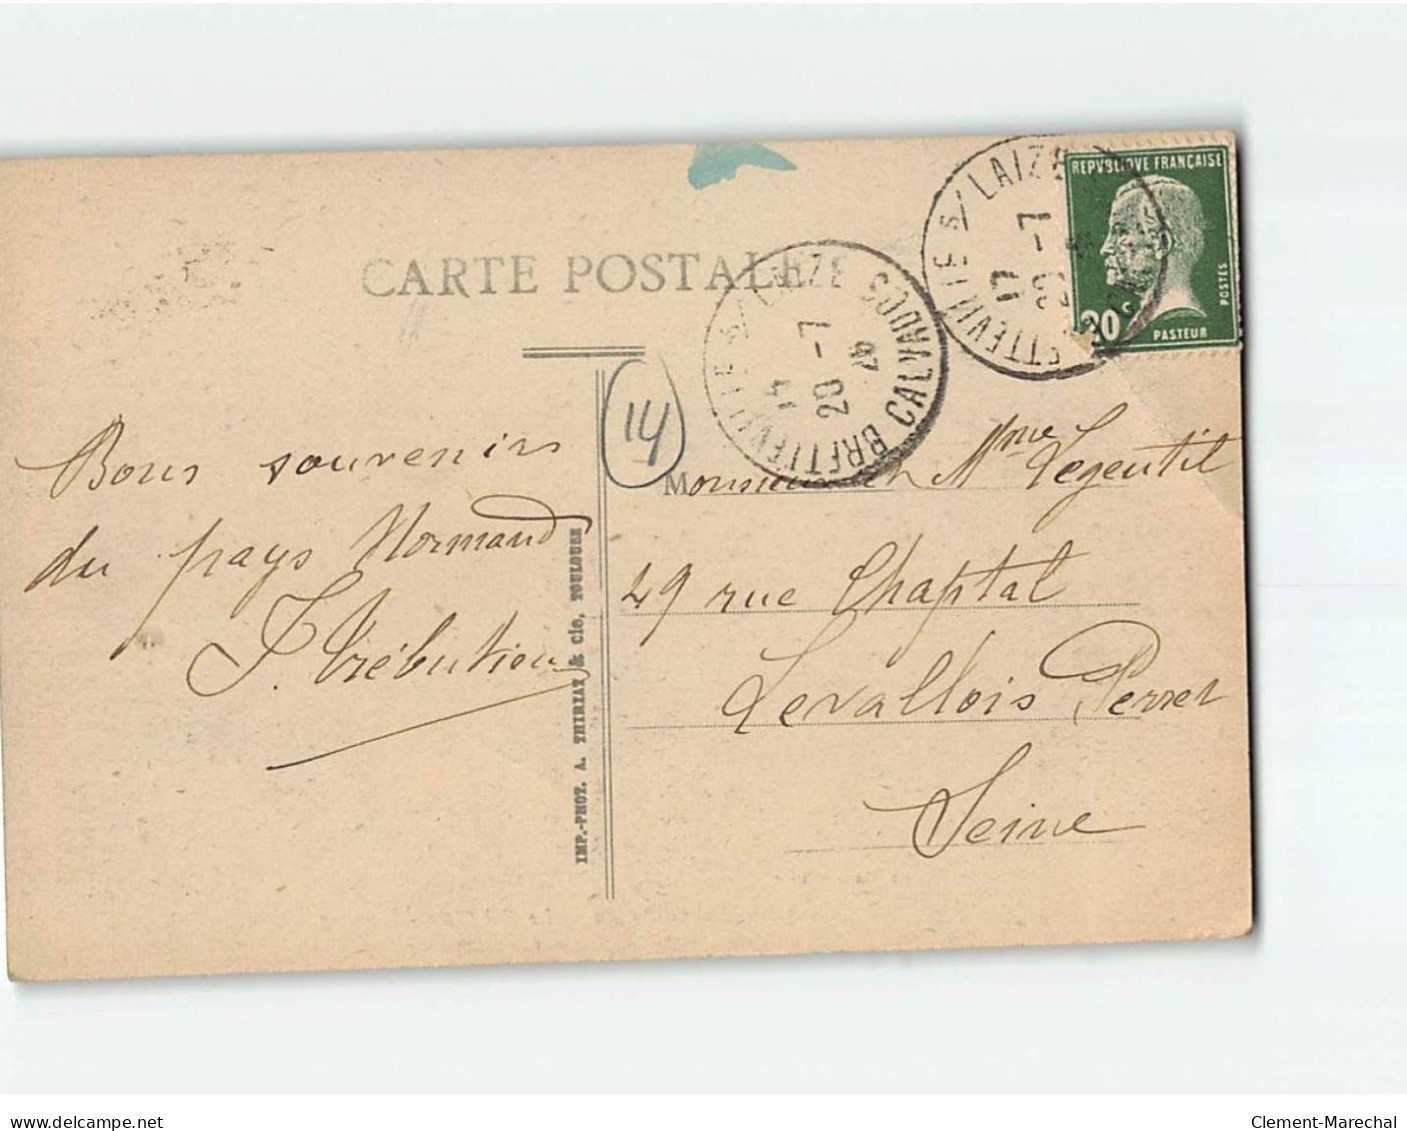 CARTE POSTALE
BRETTEVILLE S/ LAIZE CALVADOS
14
20 -7
26
BRETTEVILLE S/ LAIZE
17
20 -7
REPVBLIQVE FRANÇAISE
POSTES
20 c
PASTEUR
14
Bons souvenirs
du pays Normand
J. Trébutien
IMP.-PHOT. A. THIRIAT & Cie, TOULOUSE
Monsieur et Mme Legentil
49 rue Chaptal
Levallois Perret
Seine
delcampe.net
Clement-Marechal